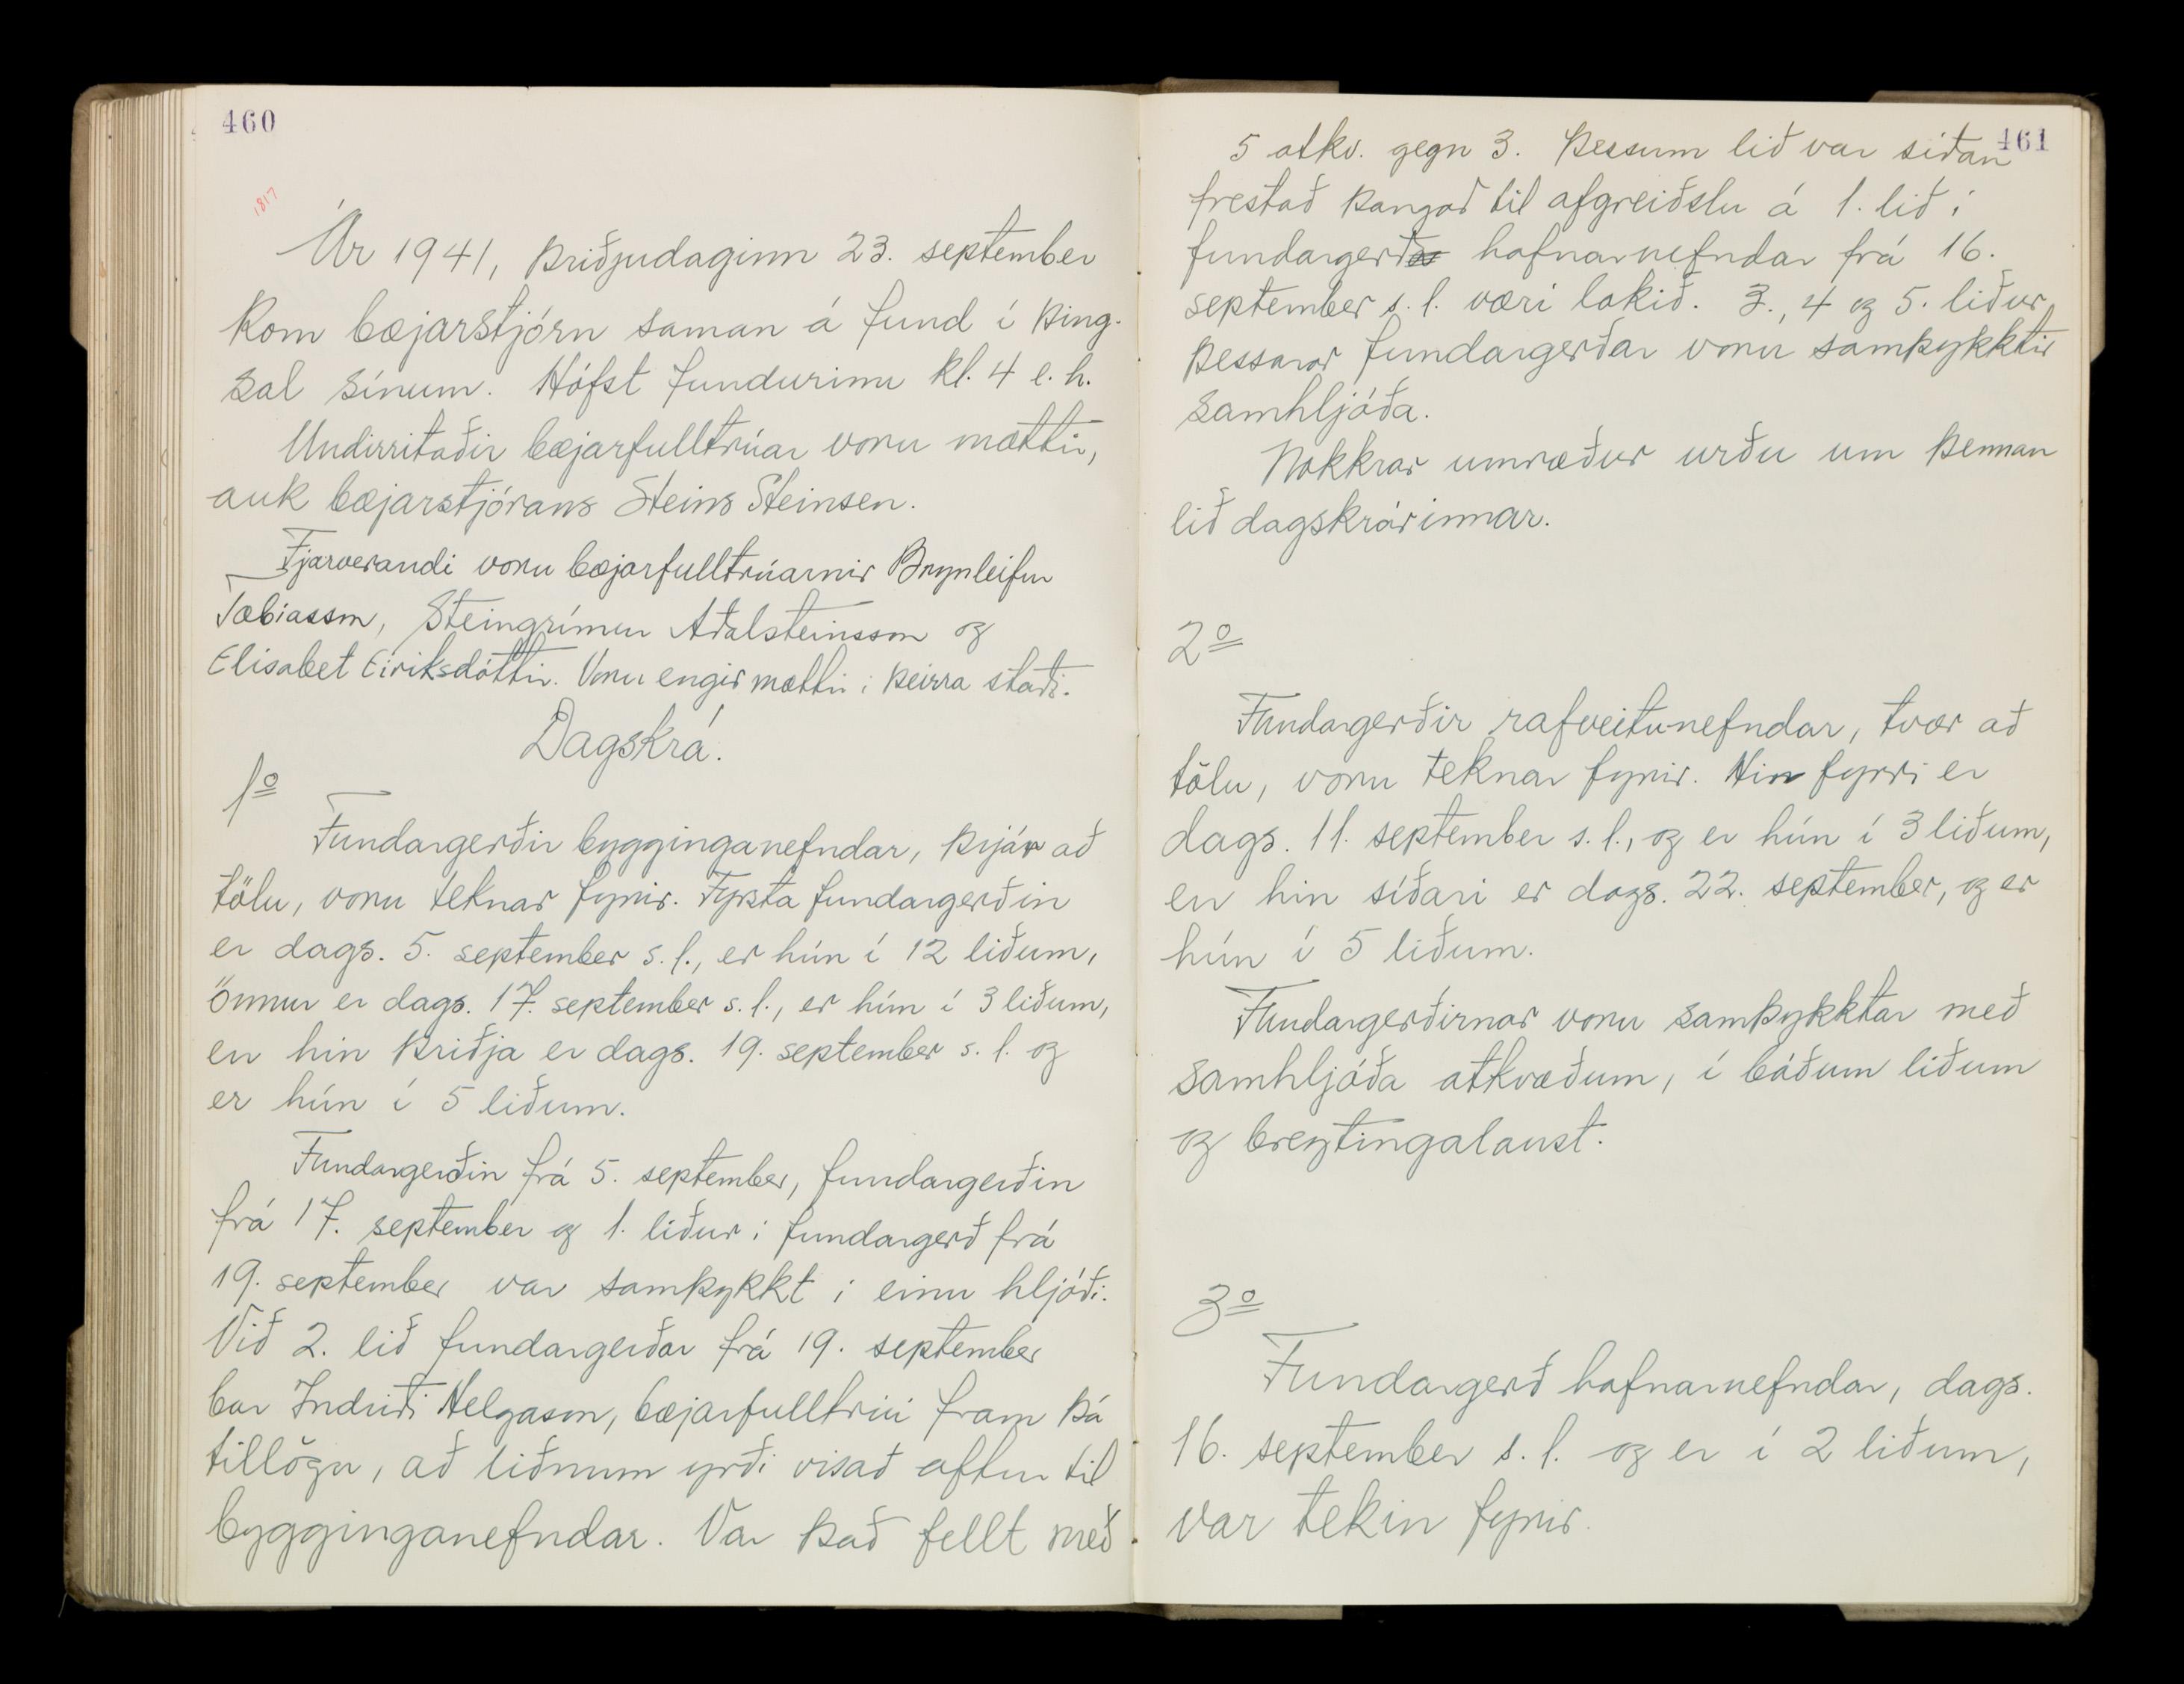 460
1817
Ár 1941, þriðjudaginn 23. september
kom bæjarstjórn saman á fund í þing-
sal sínum. Hófst fundurinn kl. 4 e.h.
Undirritaðir bæjarfulltrúar voru mættir,
auk bæjarstjórans Steins Steinsen.
Fjarverandi voru bæjarfulltrúarnir Brynleifur
Tobiasson, Steingrímur Aðalsteinsson og
Elísabet Eiríksdóttir. Voru engir mættir í þeirra stað.
Dagskrá.
1º
Fundargerðir bygginganefndar, þrjár að
tölu, voru teknar fyrir. Fyrsta fundargerðin
er dags. 5. september s.l., er hún í 12 liðum,
önnur er dags. 17. september s.l., er hún í 3 liðum,
en hin þriðja er dags. 19. september s.l. og
er hún í 5 liðum.
Fundargerðin frá 5. september, fundargerðin
frá 17. september og 1. liður í fundargerð frá
19. september var samþykkt í einu hljóði.
Við 2. lið fundargerðar frá 19. september
bar Indriði Helgason, bæjarfulltrúi fram þá
tillögu, að liðnum yrði vísað aftur til
bygginganefndar. Var það fellt með
461
5 atkv. gegn 3. Þessum lið var síðan
frestað þangað til afgreiðslu á 1. lið í
fundargerð hafnarnefndar frá 16.
september s.l. væri lokið. 3., 4 og 5. liður
þessarar fundargerðar voru samþykktir
samhljóða.
Nokkrar umræður urðu um þennan
lið dagskrárinnar.
2º
Fundargerðir rafveitunefndar, tvær að
tölu, voru teknar fyrir. Hin fyrri er
dags. 11. september s.l., og er hún í 3 liðum,
en hin síðari er dags. 22. september, og er
hún í 5 liðum.
Fundargerðirnar voru samþykktar með
samhljóða atkvæðum, í báðum liðum
og breytingalaust.
3º
Fundargerð hafnarnefndar, dags.
16. september s.l. og er í 2 liðum,
var tekin fyrir.